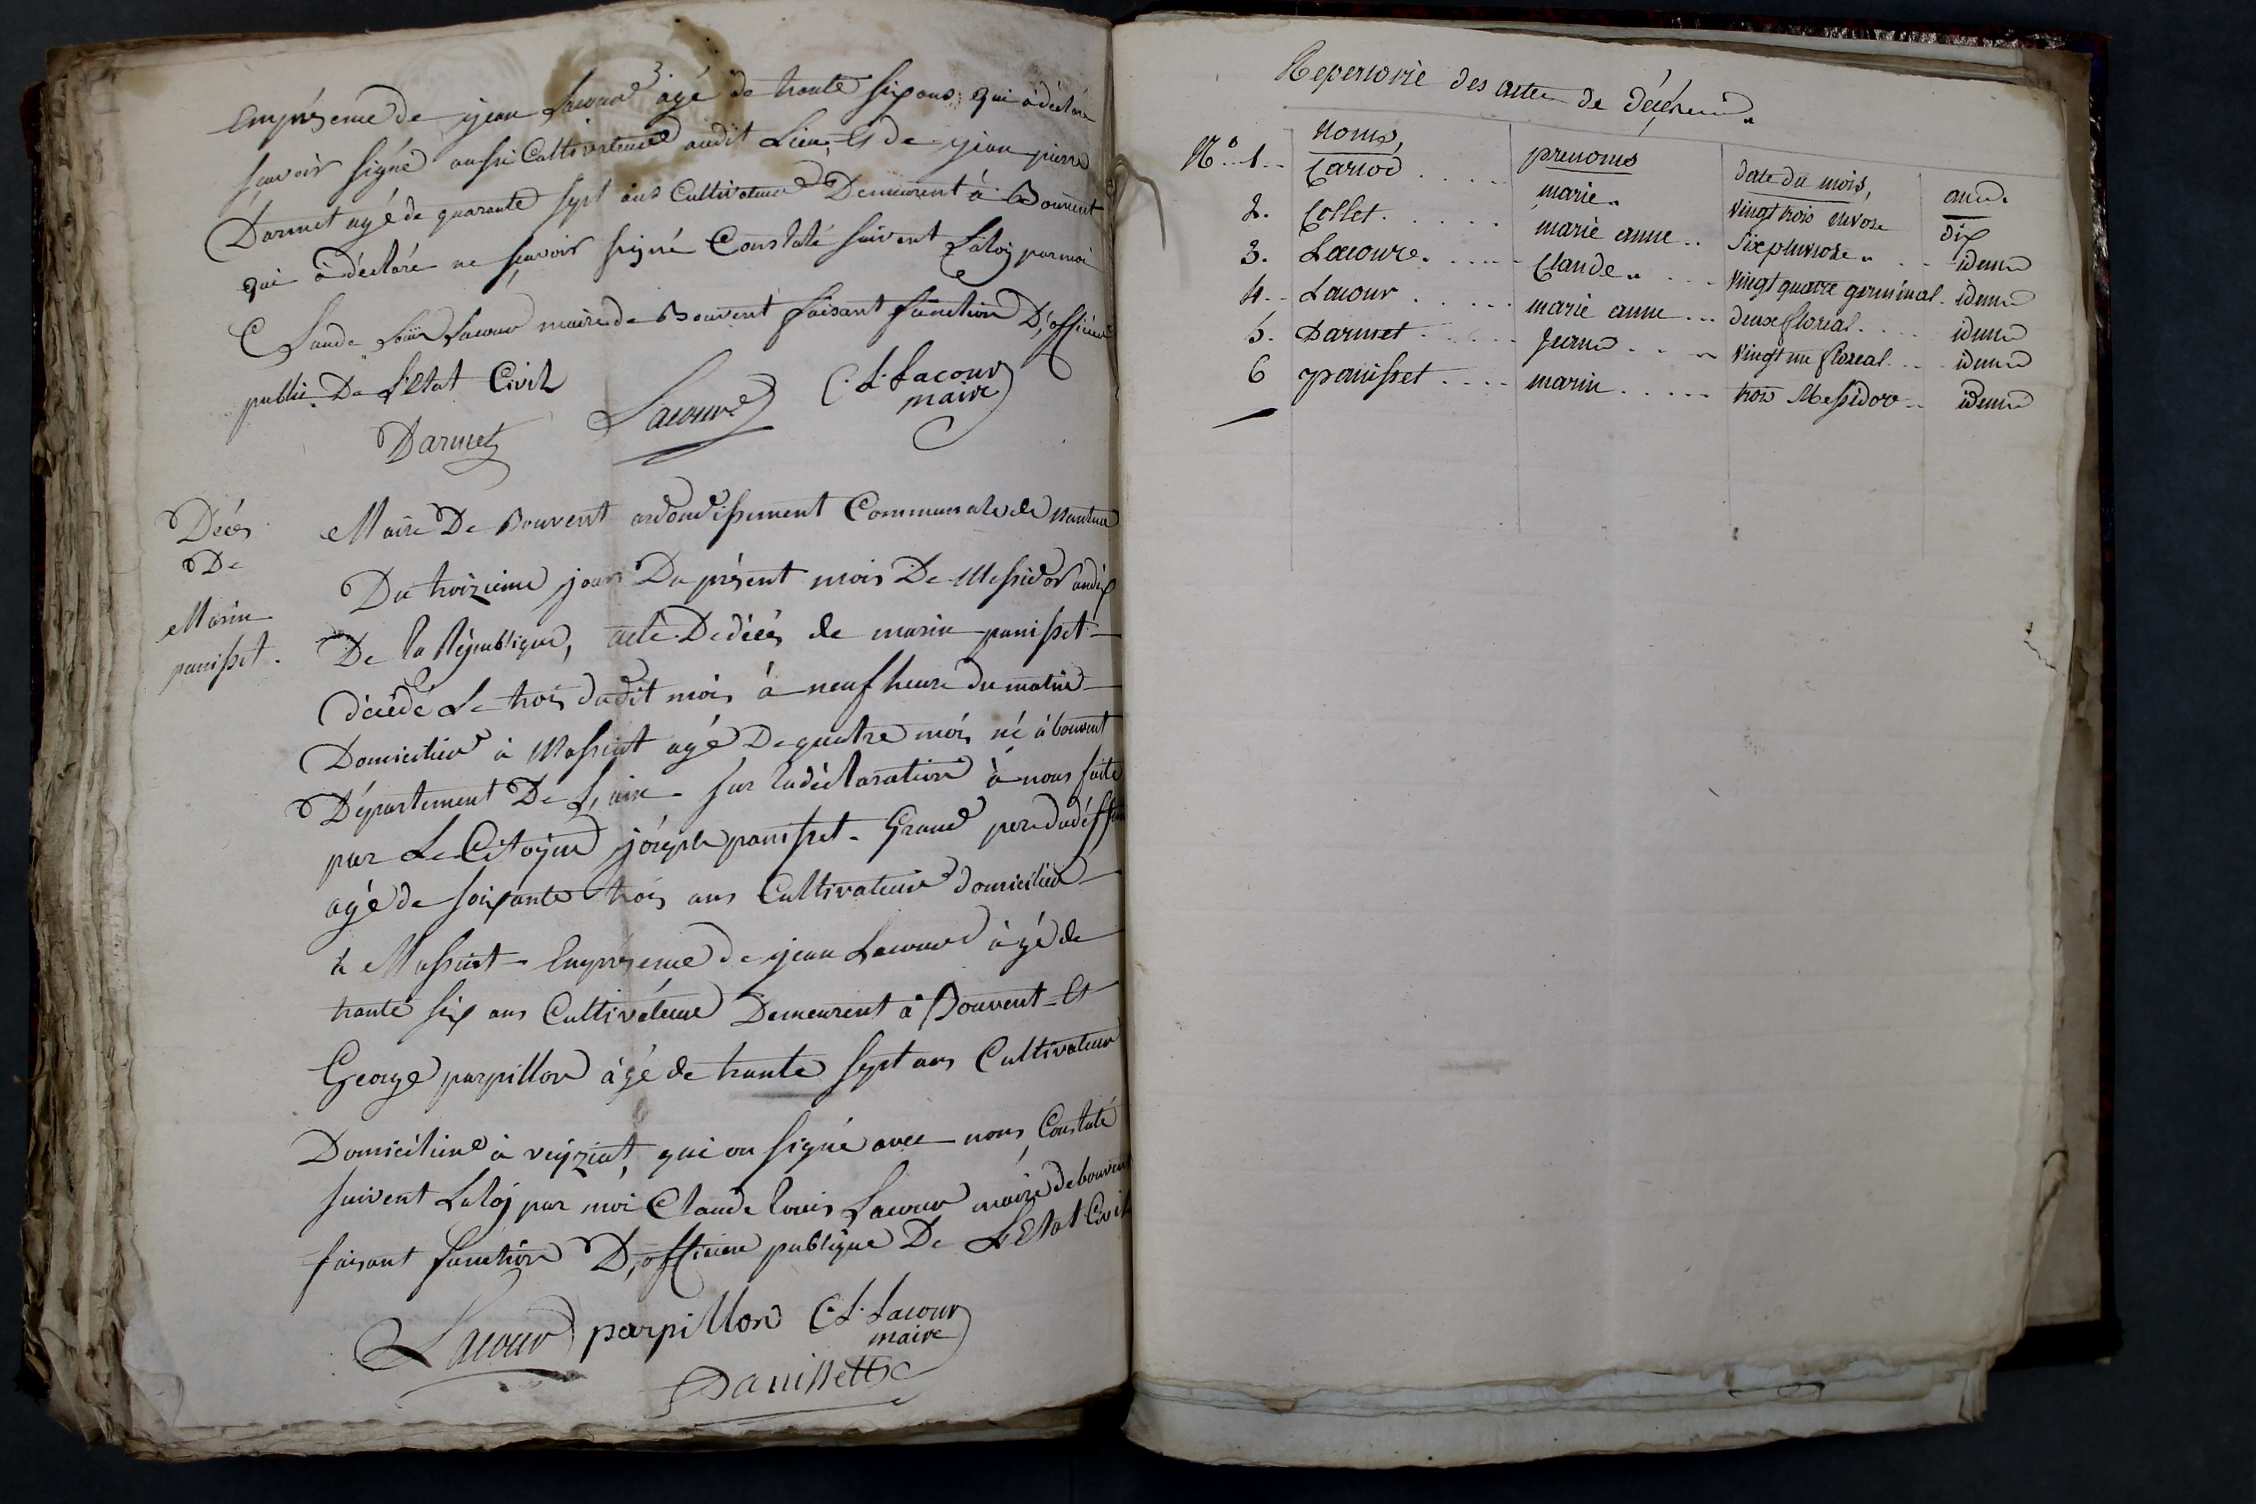 Emprésence de jean Lacour agé de trante six ans qui à déclaré
sçavoir signé aussi Cultivateur audit Lieu Et de jean pierre
Darmet agé de quarante sept ans Cultivateur Demeurent à Bouvent
qui à déclaré ne sçavoir signé Constaté suivent La loj par moi
Claude Loüis Lacour maire de Bouvent faisant function D'officier
public De L'Etat Civil
Darmet Lacour C. L. Lacour
maire
Décés
De
Marin
panisset.
Mairie De Bouvent arrondissement Communale de Nantua
Du troizieme jour Du présent mois De Messidor an dix
De la République, acte De décés de marin panisset
décédé Le trois dudit mois à neuf heure du matin
Domicilier à Massiat agé De quatre mois né à bouvent
Département De L'ain sur la déclaration à nous faite
par Le Citoyen jóseph panisset Grand pere du déffunt
agé de soixante trois ans Cultivateur domicilier
à Massiat Emprésence de jean Lacour àgé de
trante six ans Cultivateur Demeurent à Bouvent Et
George parpillon àgé de trante sept ans Cultivateur
Domicilier à veÿziat, qui on signé avec nous, Constaté
suivent La loj par moi Claude louis Lacour maire de bouvent
faisant function D'officier publique De L'Etat Civil
Lacour parpillon C. L. Lacour
maire
Panissett
Repertorie des actes de décés
Noms, prenoms date du mois, année
N.º 1. Carrod marie vingt trois nivose dix
2. Collet marie anne six pluviose idem
3. Lacoure Claude vingt quatre germinal idem
4. Lacour marie anne deux floréal idem
5. Darmet Jean vingt un floreal idem
6 panisset marin trois Messidor idem